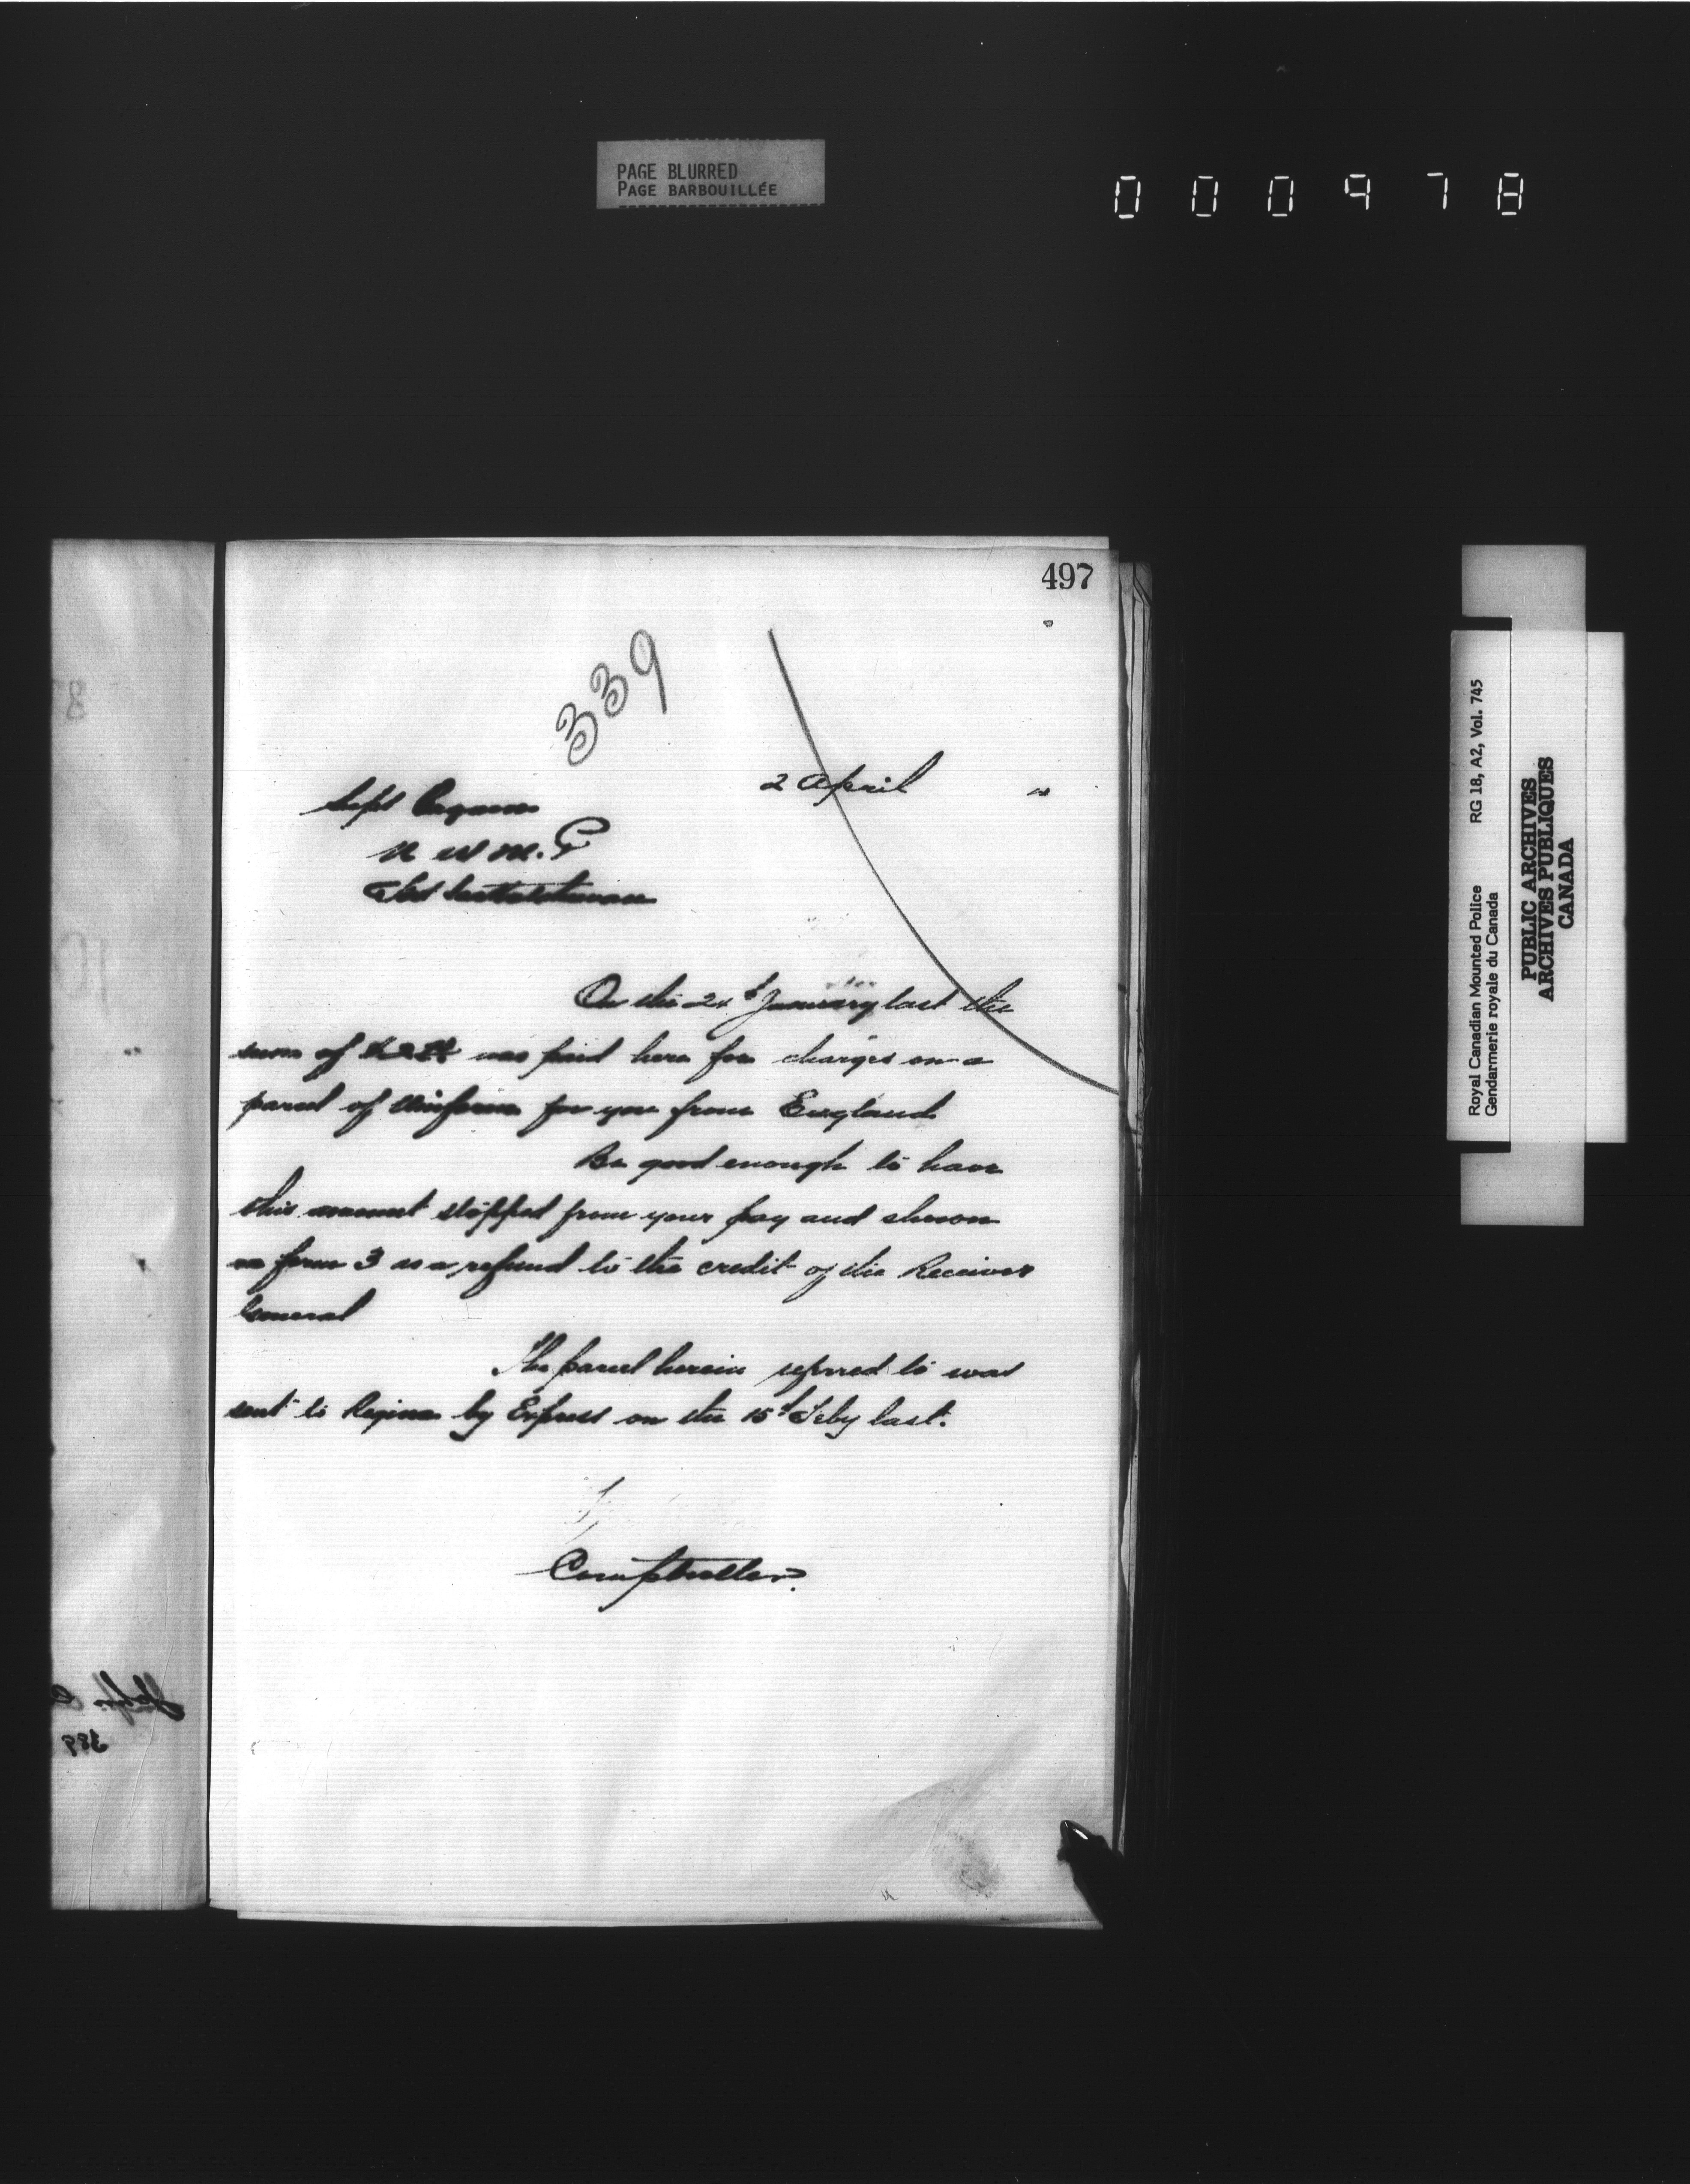 PAGE BLURRED
PAGE BARBOUILLÉE
000978
497
339
2 April "
Supt
N W M. P
On the January last the
sum of was paid here for charges on a
parcel of Uniform for you from England
Be good enough to have
this amount stopped from your pay and shewn
on form 3 as a refund to the credit of the Receiver
General
The parcel herein referred to was
sent to Regina by Express on the 15th Feby last.
Comptroller.
389
Royal Canadian Mounted Police RG 18, A2, Vol. 745
Gendarmerie royale du Canada
PUBLIC ARCHIVES
ARCHIVES PUBLIQUES
CANADA